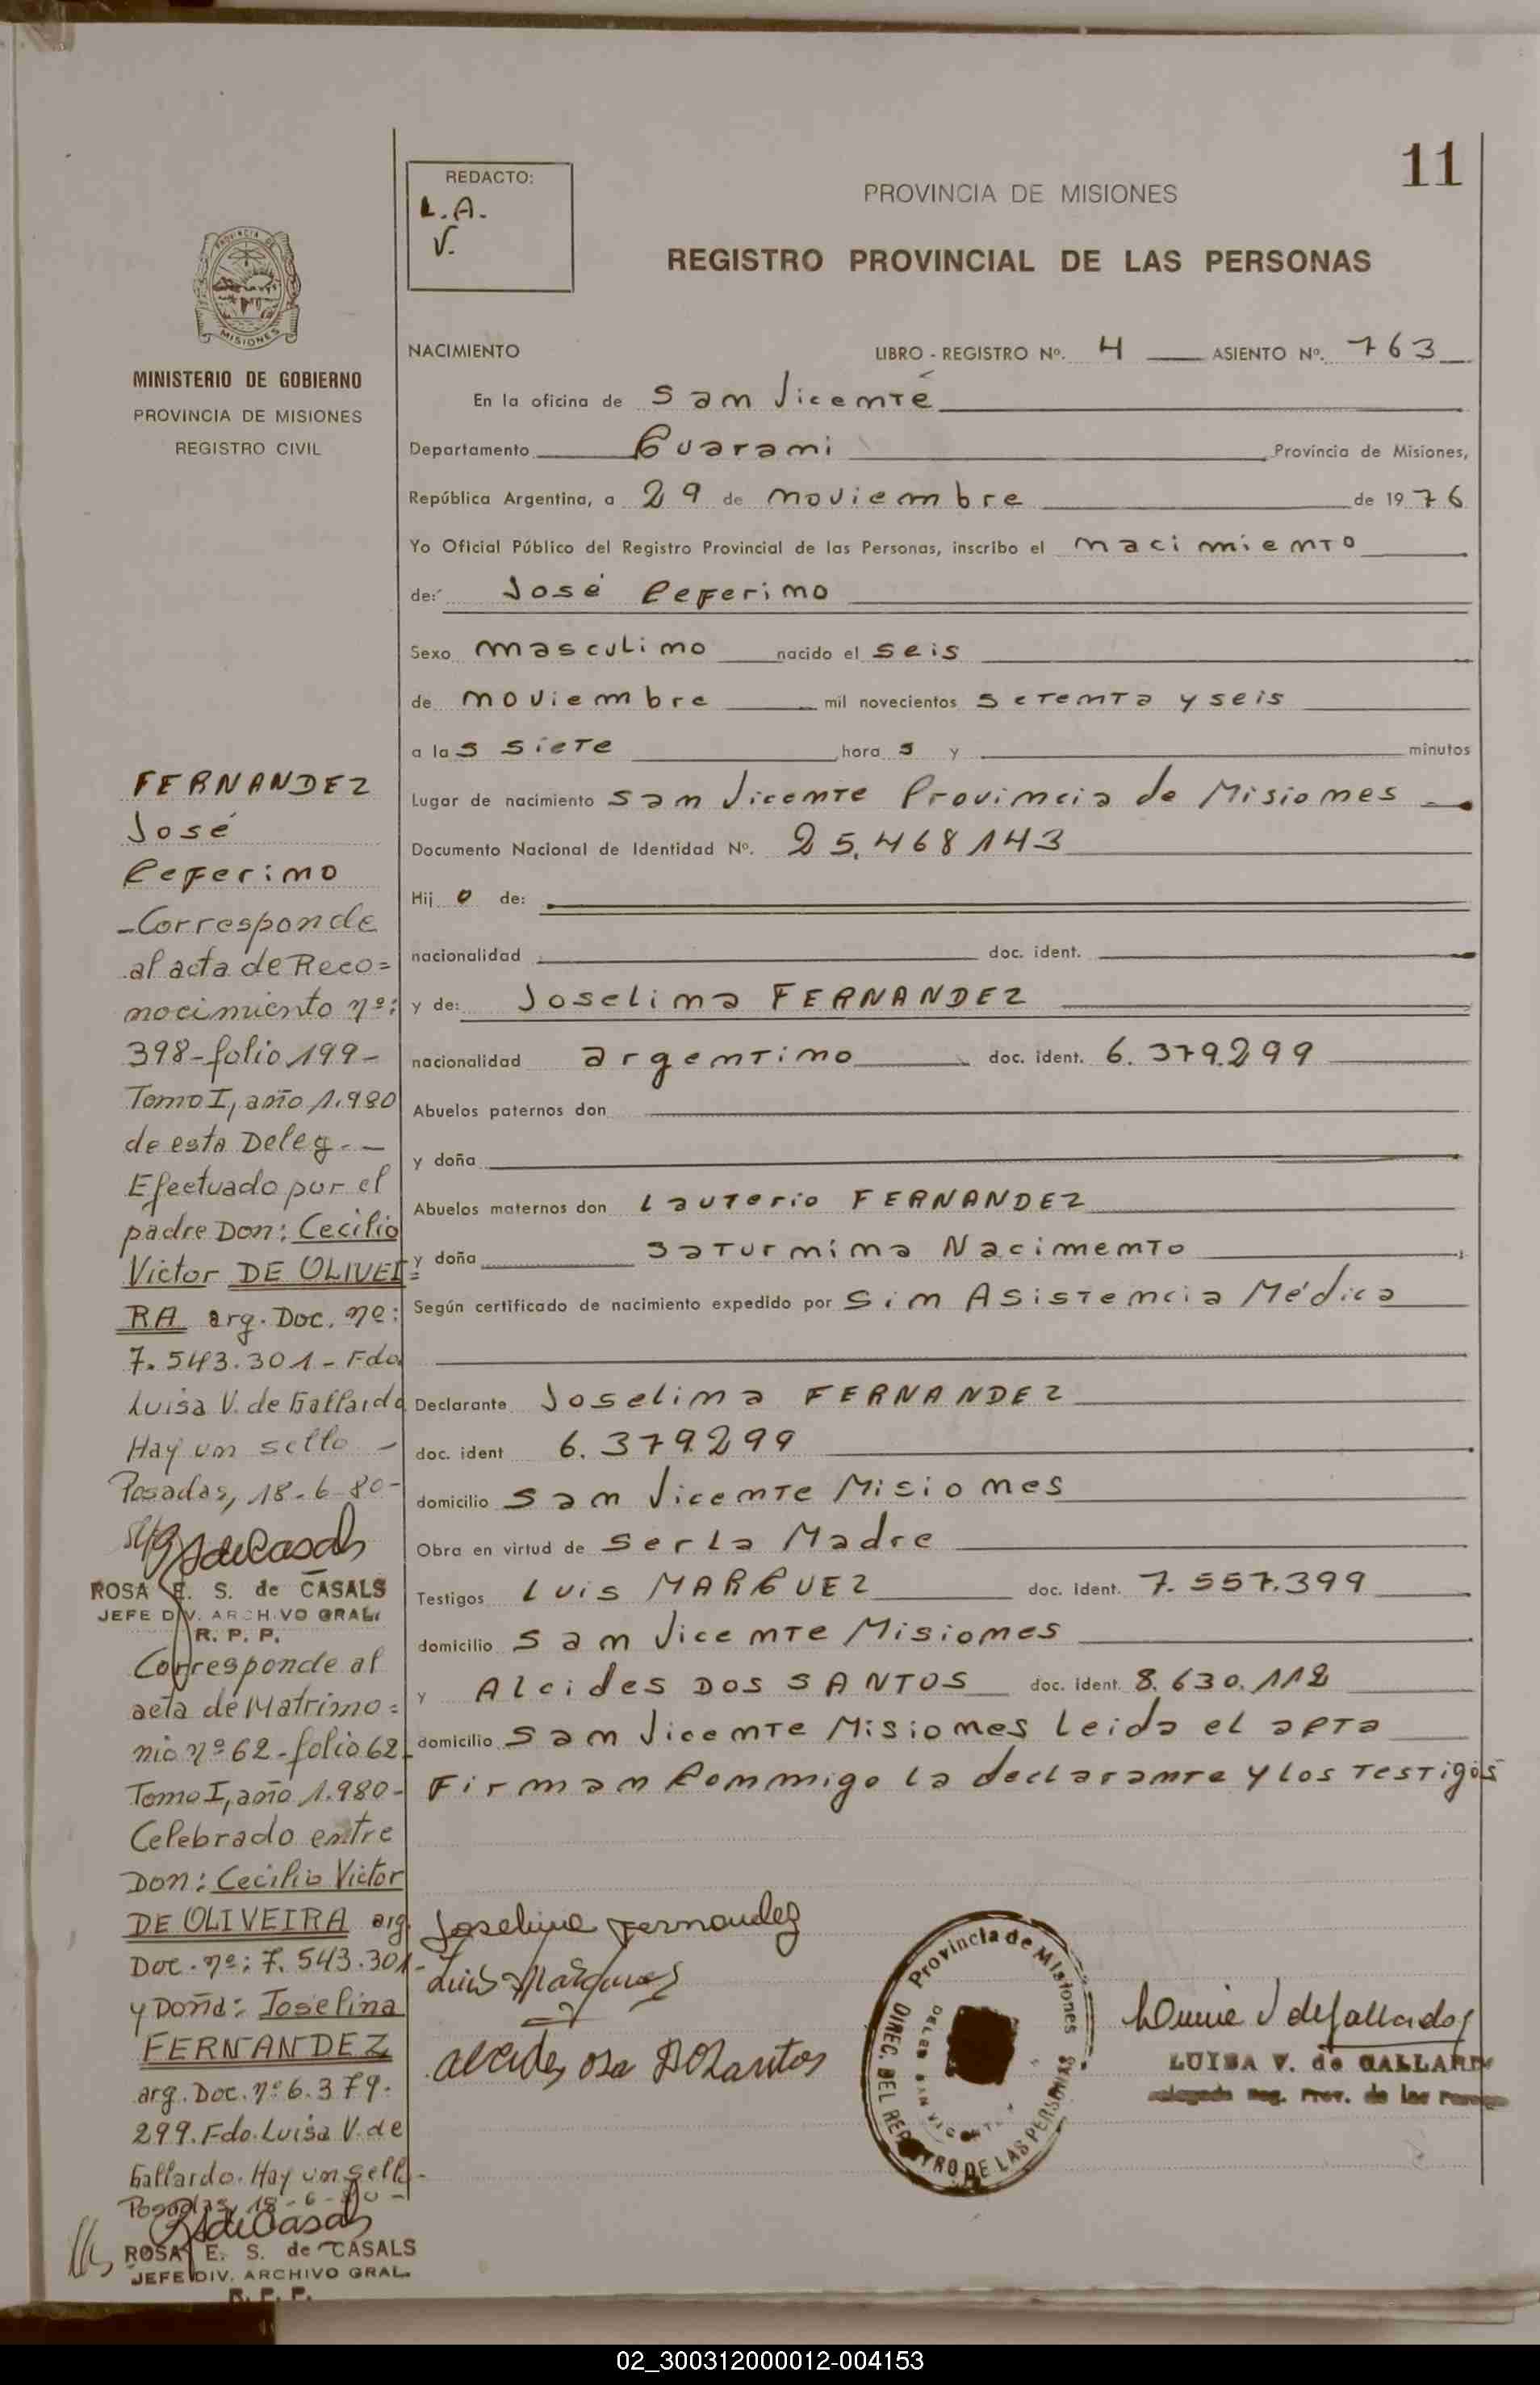 11
REDACTO:
L.A.
V.
PROVINCIA DE MISIONES
REGISTRO PROVINCIAL DE LAS PERSONAS
PROVINCIA DE
MISIONES
MINISTERIO DE GOBIERNO
PROVINCIA DE MISIONES
REGISTRO CIVIL
NACIMIENTO LIBRO - REGISTRO Nº. 4 ASIENTO Nº. 763
En la oficina de San Vicente
Departamento Guarani Provincia de Misiones,
República Argentina, a 29 de noviembre de 1976
Yo Oficial Público del Registro Provincial de las Personas, inscribo el nacimiento
de: José Ceferino
Sexo masculino nacido el seis
de noviembre mil novecientos setenta y seis
a las siete horas y minutos
Lugar de nacimiento San Vicente Provincia de Misiones
Documento Nacional de Identidad Nº. 25.468143
Hijo de:
nacionalidad doc. ident.
y de: Joselina FERNANDEZ
nacionalidad argentino doc. ident. 6.379.299
Abuelos paternos don
y doña
Abuelos maternos don Lauterio FERNANDEZ
y doña Saturnina Nacimento
Según certificado de nacimiento expedido por Sin Asistencia Médica
Declarante Joselina FERNANDEZ
doc. ident 6.379.299
domicilio San Vicente Misiones
Obra en virtud de Ser La Madre
Testigos Luis MARGUEZ doc. ident. 7.557.399
domicilio San Vicente Misiones
y Alcides DOS SANTOS doc. ident. 8.630.112
domicilio San Vicente Misiones Leida el acta
Firman conmigo la declarante y los testigos
FERNANDEZ
José
Ceferino
-Corresponde
al acta de Reco=
nocimiento nº:
398-folio 199-
Tomo I, año 1.980
de esta Deleg.-
Efectuado por el
padre Don: Cecilio
Victor DE OLIVEI=
RA arg. Doc. nº:
7.543.301-Fdo
Luisa V. de Gallardo
Hay un sello -
Posadas, 18-6-80-
ROSA E. S. de CASALS
JEFE DIV. ARCHIVO GRAL.
R. P. P.
Corresponde al
acta de Matrimo=
nio nº 62-folio 62-
Tomo I, año 1.980-
Celebrado entre
Don: Cecilio Victor
DE OLIVEIRA arg.
Doc. nº: 7.543.301-
y Doña: Joselina
FERNANDEZ
arg. Doc. nº 6.379.
299. Fdo. Luisa V. de
Gallardo. Hay un sello-
Posadas, 18-6-80-
ROSA E. S. de CASALS
JEFE DIV. ARCHIVO GRAL.
R. P. P.
Joselina Fernandez
Luis Marquez
Provincia de Misiones
DIREC. DEL REGISTRO DE LAS PERSONAS
DELEG SAN VICENTE
LUISA V. de GALLARDO
Reg. Prov. de las
02_300312000012-004153